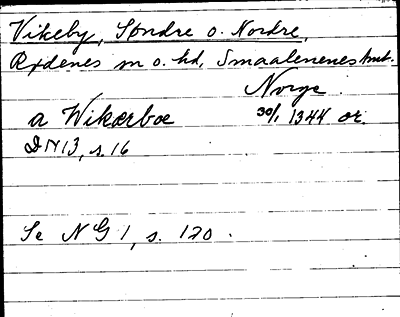 Vikeby, Søndre o. Nordre,
Rødenes sn o. hd, Smaalenenes Amt.
Norge.
a Wikærboe 30/1 1344 or.
DN 13, s. 16
Se NG 1, s. 120.